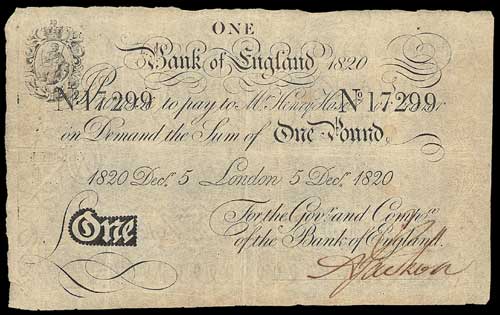 ONE
Bank of England 1820
No 17299 to pay to Mr. Henry Hase No 17299
on Demand the Sum of One Pound
1820 Decr. 5 London 5 Decr. 1820
For the Govr. and Compa. of the
One
of the Bank of England.